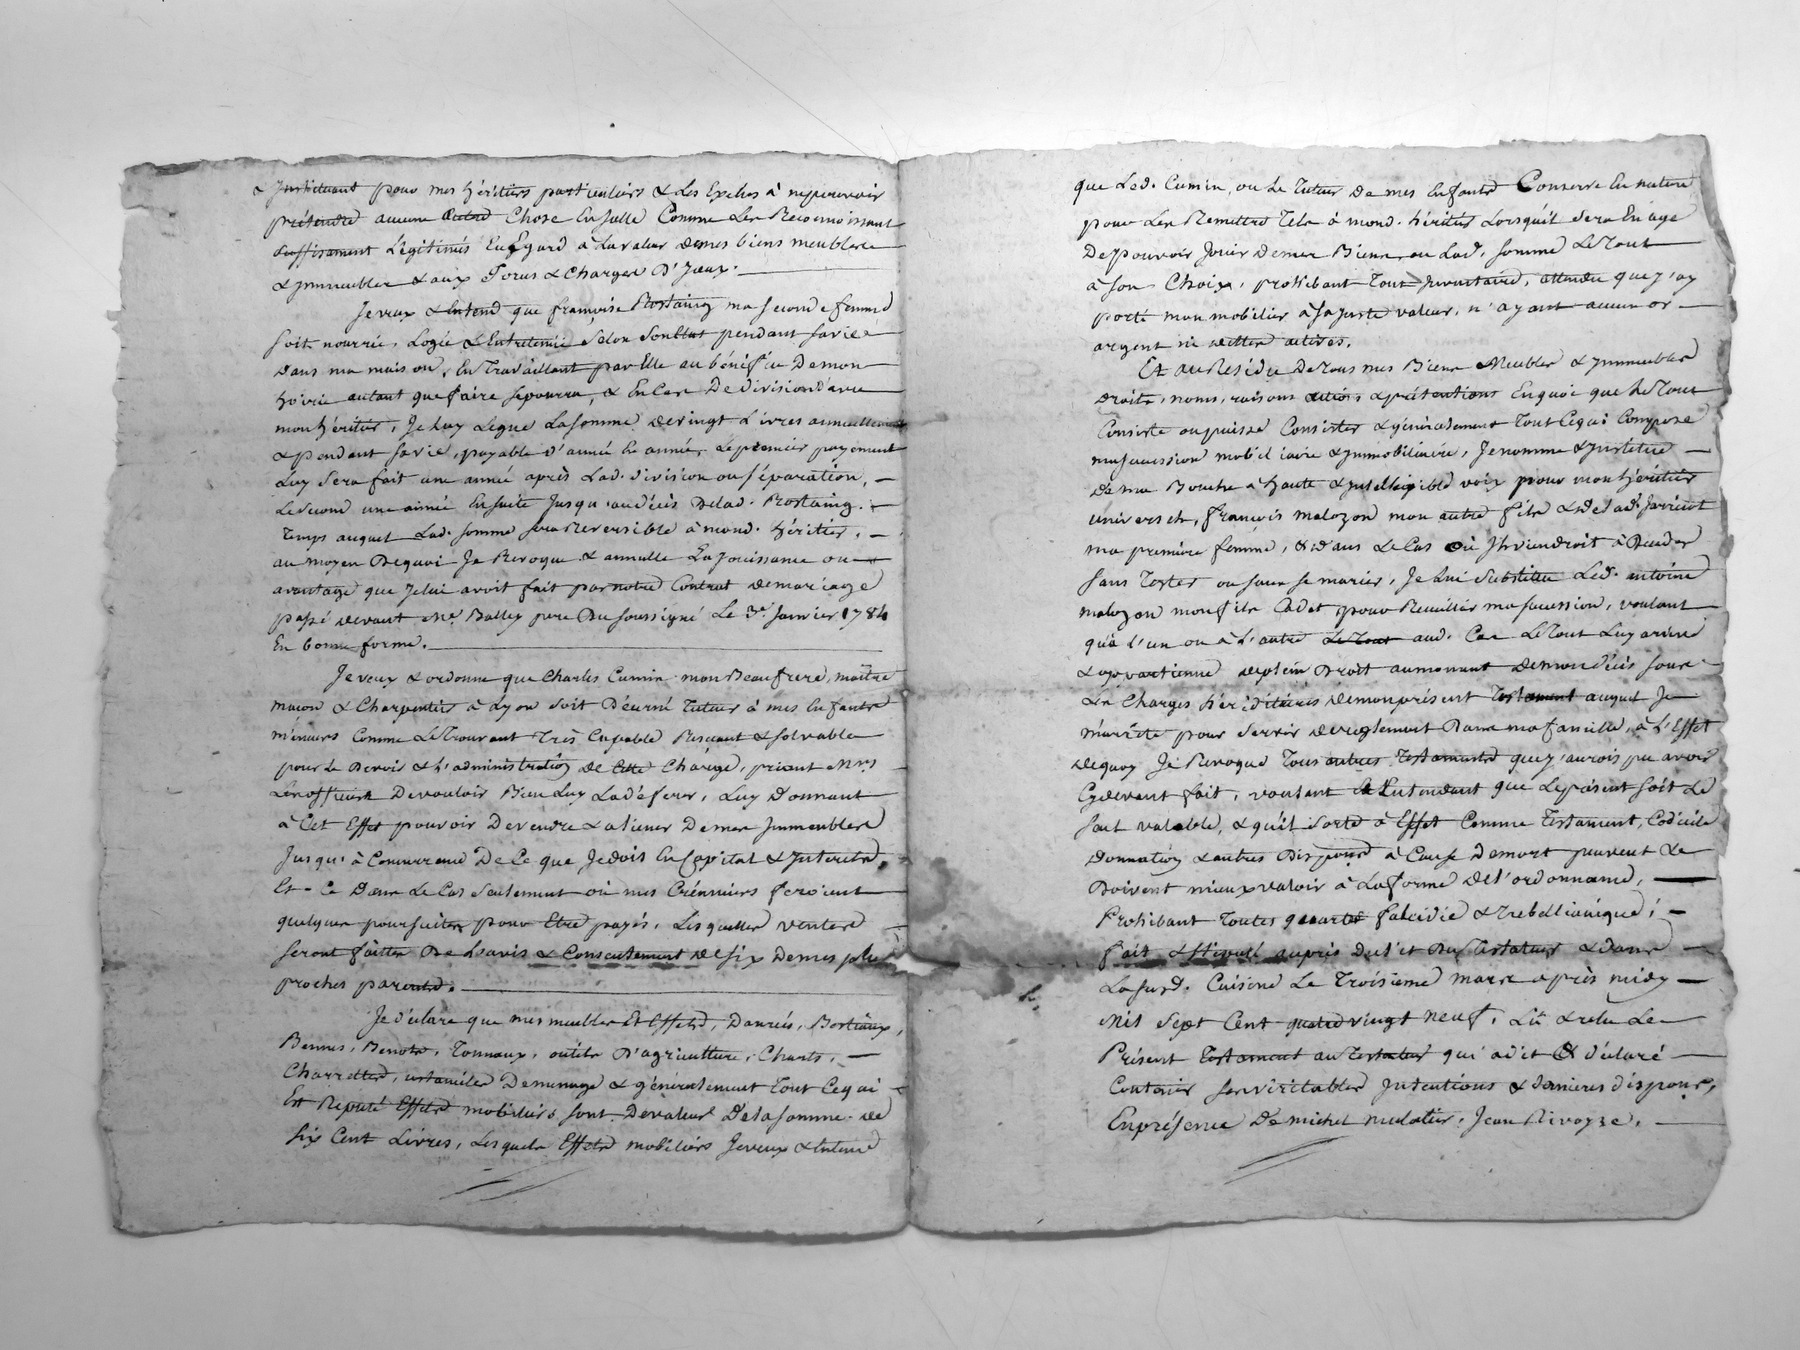 & Instituant pour mes héritiers particuliers & les Exclus à ne pouvoir
prétendre aucune autre Chose En Icelle Comme Les Reconnoissant
suffisament Légitimés Eu Egard à La valeur de mes biens meubles
& Immeubles & aux Forces & Charges D'Iceux.
Je veux & Entend que françoise Rostaing ma seconde femme
soit nourrie, Logée & Entretenüe selon son Etat pendant sa vie
Dans ma maison, En Travaillant par Elle au bénéfice De mon
hoirie autant que faire se pourra, & En Cas De division d'avec
mon héritier, Je Luy Légue La somme de vingt Livres annuellement
& pendant sa vie, payable d'année En année, Le premier payement
Luy sera fait une année après Lad. division ou séparation,
Le second une année Ensuite Jusqu'au décès De lad. Rostaing.
Temps auquel Lad. somme sera Reversible à mond. héritier,
au moyen Dequoi Je Revoque & annulle La Jouissance ou
avantage que Je lui avoit fait par notre Contrat de mariage
passé devant Me. Balley pere Du soussigné Le 3e. Janvier 1784
En bonne forme.
Je veux & ordonne que Charles Cumin mon Beaufrere, maitre
macon & Charpentier à Lyon soit Décerné Tuteur à mes Enfants
mineurs Comme Le Trouvant Très Capable & solvable
pour Le Devoir & L'administration de Cette Charge, priant Mrs
Les officiers De vouloir Bien Luy La déférer, Luy Donnant
à Cet Effet pouvoir De vendre & aliener De mes Immeubles
Jusqu'à Concurrence De Ce que Je dois En Capital & Interets,
Et Ce Dans Le Cas seulement où mes Créanciers feroient
quelques poursuites pour Etre payés, Les quelles ventes
seront faites De L'avis & Consentement de six De mes plus
proches parents.
Je déclare que mes meubles Et Effets, Danrées, Bestiaux,
Bennes, Benots, Tonneaux, outils D'agriculture, Charts,
Charrettes, ustanciles De menage & généralement Tout Ce qui
Est Reputé Effets mobiliers sont De valeur De la somme de
six Cent Livres, Les quels Effets mobiliers Je veux & Entend
que Led. Cumin, ou Le Tuteur De mes Enfants Conserve En nature
pour Les Remettre Tels à mond. héritier Lorsqu'il sera En age
De pouvoir Jouir De mes Biens, ou Lad. somme Le Tout
à son Choix, prohibant Tout Inventaire, attendu que J'ay
porté mon mobilier à sa Juste valeur, n'ayant aucun or
argent ni dettes actives.
Et au Résidu De Tous mes Biens Meubles & Immeubles
Droits, noms, raisons actions & prétentions En quoi que Le Tout
Consiste ou puisse Consister & généralement Tout Ce qui Compose
ma sucession mobiliaire & Immobiliaire, Je nomme & Institue
De ma Bouche à haute & Intelligible voix pour mon héritier
universel, François malozon mon autre fils & de lad. Jarricot
ma première femme, & dans Le Cas où Il viendroit à Décéder
sans Tester ou sans se marier, Je Lui Substitue Led. antoine
malozon mon fils Cadet pour Receuillir ma sucession, voulant
qu'à l'un ou à L'autre Le Tout aud. Cas Le Tout Luy arrive
& appartienne de plein Droit au moment de mon décès sous
Les Charges héréditaires de mon présent Testament auquel Je
m'arrête pour servir de reglement Dans ma famille, à L'Effet
dequoy Je Revoque Tous autres Testaments que J'aurois pu avoir
Cydevant fait, voulant & Entendant que Le présent soit Le
seul valable, & qu'il sorte à Effet Comme Testament, Codicile
Donnation & autres Dispons. à Cause De mort peuvent &
Doivent mieux valoir à La forme De L'ordonnance,
Prohibant Toutes quartes falcidie & Trebellianique;
fait & Stipulé auprès Du lit Du Testateur & dans
La susd. Cuisine Le Troisième mars après midy
Mil Sept Cent quatre vingt neuf, Lû & relu Le
Présent Testament au Testateur qui a dit & déclaré
Contenir ses véritables Intentions & dernieres dispons.,
En présence De michel mulatier, Jean Rivoyre,